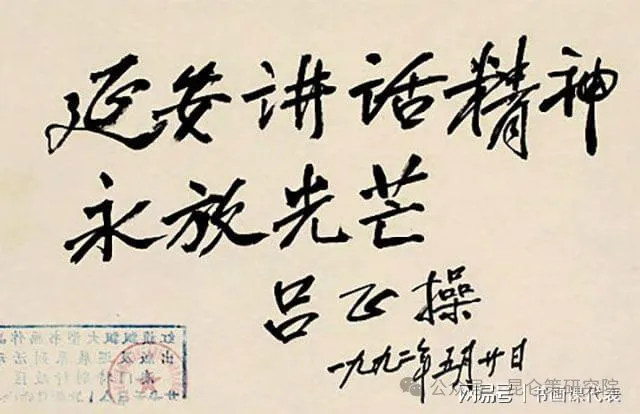 延安讲话精神
永放光芒
吕正操
一九九二年五月廿日
公众号 · 昆仑策研究院
网易号 | 书画课代表